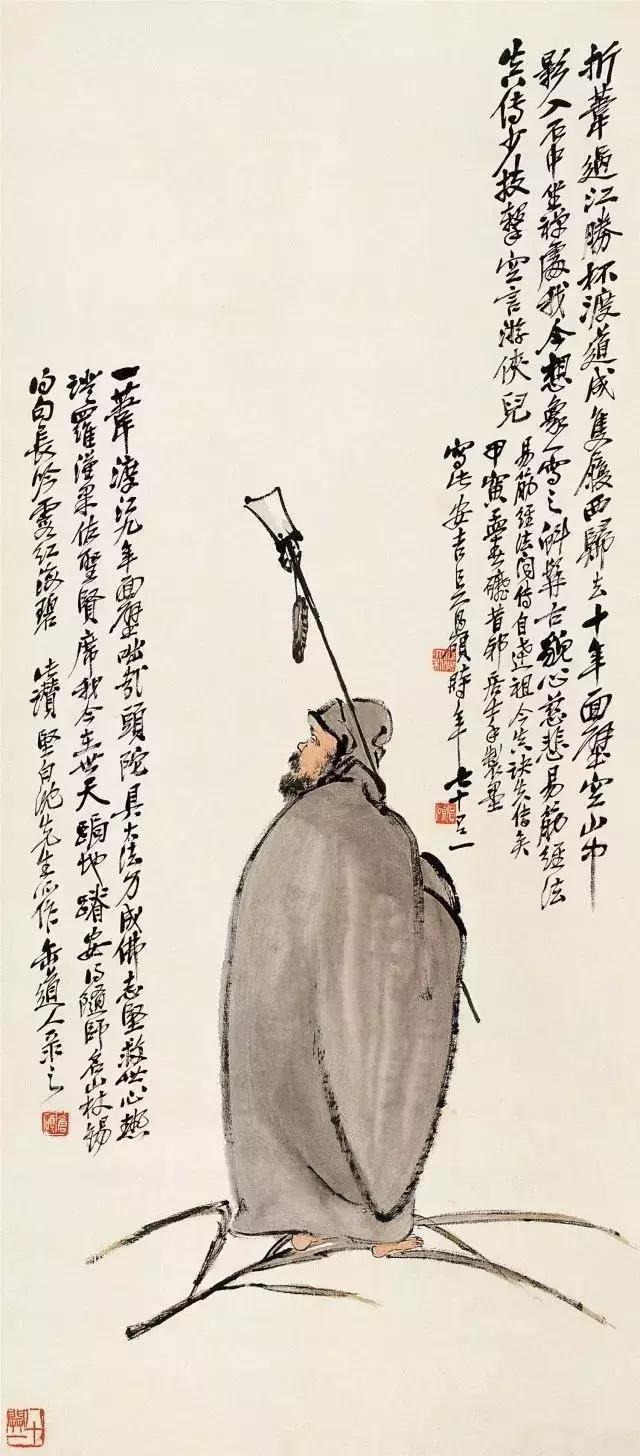 折葦過江勝杯渡道成隻履西歸去十年面壁空山中
影入石中坐禪處我今想象一寫之 古貌心慈悲易筋經法
失傳少技擊空言游俠兒
易筋經法聞傳自達祖今失訣失傳矣
甲寅孟 昔邨居士手製墨
寫此安吉吳昌碩時年七十一
一葦渡江九年面壁咄哉頭陀具大法力成佛志堅救世心熱
證羅漢果佐聖賢席我今在世天跼地蹐安得隨師名山杖錫
得句長吟霞紅海碧 此讚堅白 先生所作 缶道人录之